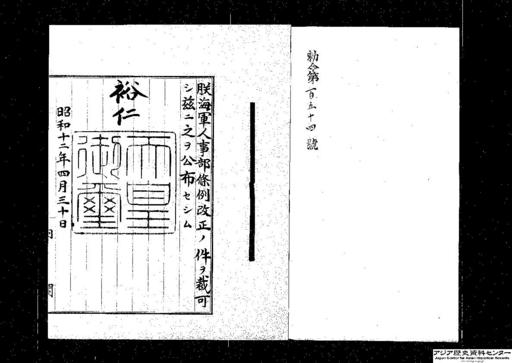 勅令第百五十四號
朕海軍人事部條例改正ノ件ヲ裁可
シ茲ニ之ヲ公布セシム
裕仁
天皇
御璽
昭和十二年四月三十日
内閣
アジア歴史資料センター
Japan Center for Asian Historical Records